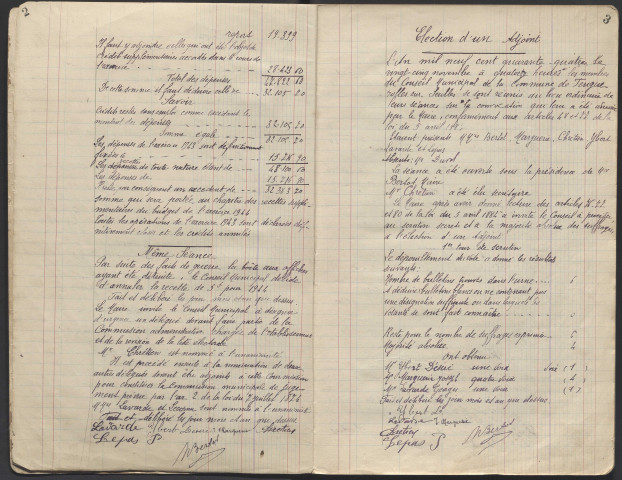 2
report 19.399
Il faut y ajouter celles qui ont été l'objet de
crédits supplémentaires accordés dans le cours de
l'exercice 28.623 10
Total des dépenses
De cette somme il faut déduire celle de 32.105 20
Savoir
Crédits restés sans emploi comme excédant le
montant des dépenses 32.105 20
Somme égale 32.105 20
Les dépenses de l'exercice 1943 sont définitivement
fixées à
Les recettes de toute nature étant de
Les dépenses de
Reste par conséquent un excédent de 32.303 20
Somme qui sera portée au chapitre des recettes supplé-
mentaires du budget de l'exercice 1944
Toutes les opérations de l'exercice 1943 sont déclarées défi-
nitivement closes et les crédits annulés
Même Séance
Par suite des faits de guerre, la boîte aux affiches
ayant été détruite, le Conseil Municipal décide
d'annuler la recette de pour 1944
Fait et délibéré les jour mois et an que dessus
Le Maire invite le Conseil Municipal à désigner
un délégué devant faire partie de la
Commission administrative chargée de l'établissement
et de la révision de la liste électorale
Mr Chrétien est nommé à l'unanimité
Il est procédé ensuite à la nomination de deux
autres délégués devant être adjoints à cette Commission
pour constituer la Commission municipale de juge-
ment prévue par l'art 2 de la loi du 7 juillet 1874
MM Lavarde et sont nommés à l'unanimité
Fait et délibéré les jour mois et an que dessus
Lavarde Hbert Désiré Marguerie
Lepas P Bertot
3
Election d'un Adjoint
L'An mil neuf cent quarante quatre le
vingt cinq novembre à quatorze heures les membres
du Conseil Municipal de la Commune de
se sont réunis au lieu ordinaire de
leurs séances sur la convocation qui leur a été adressée
par le Maire, conformément aux articles 48 et 77 de la
loi du 5 avril 1884
Etaient présents MM Bertot, Marguerie, Chrétien, Hbert
Lavarde et Lepas
Absent Mr Duval
La séance a été ouverte sous la présidence de Mr
Bertot Maire
Mr Chrétien a été élu secrétaire
Mr le Maire après avoir donné lecture des articles 76, 77
et 80 de la loi du 5 avril 1884 a invité le Conseil à procéder
au scrutin secret et à la majorité absolue des suffrages
à l'élection d'un adjoint
1er tour de scrutin
Le dépouillement du vote a donné les résultats
suivants
Nombre de bulletins trouvés dans l'urne 6
A déduire bulletins blancs ou ne contenant pas
une désignation suffisante ou dans lesquels les
votants se sont fait connaître
Reste pour le nombre de suffrages exprimés 6
Majorité absolue 4
Ont obtenu
Mr Hbert Désiré une voix 1
Mr Marguerie Joseph quatre voix 4
Mr Lavarde une voix
Fait et délibéré les jour mois et an que dessus
Hbert D
Lavarde J Marguerie
Chrétien
Lepas P Bertot